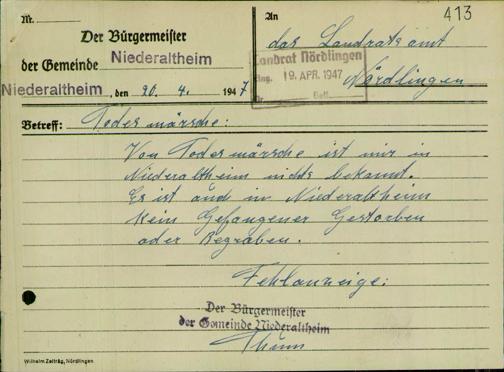 Nr.
413
An
Der Bürgermeister
der Gemeinde Niederaltheim
das Landratsamt
Nördlingen
Landrat Nördlingen
Eing. 19. APR. 1947
Nr. Beil.
Niederaltheim, den 20. 4. 1947
Betreff: Todesmärsche:
Von Todesmärsche ist mir in
Niederaltheim nichts bekannt.
Es ist auch in Niederaltheim
kein Gefangener Gestorben
oder Begraben.
Fehlanzeige:
Der Bürgermeister
der Gemeinde Niederaltheim
Wilhelm Zeiträg, Nördlingen.